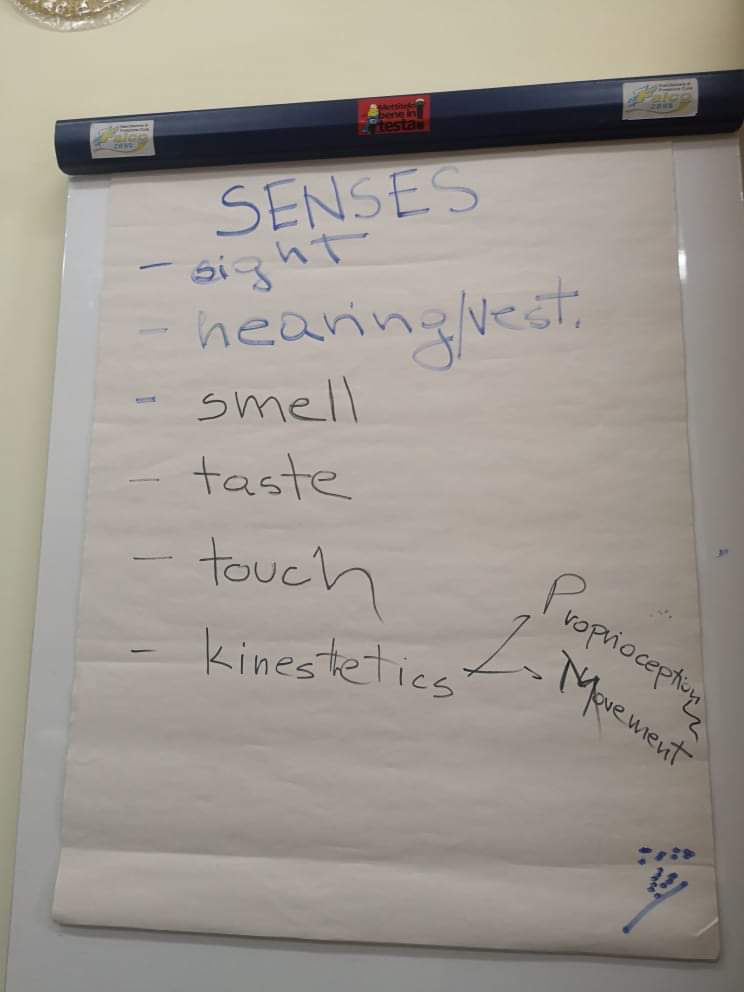 Mettitelo
bene in
testa!
Falco
SENSES
- sight
- hearing/vest.
- smell
- taste
- touch
- kinestetics
Proprioception
Movement